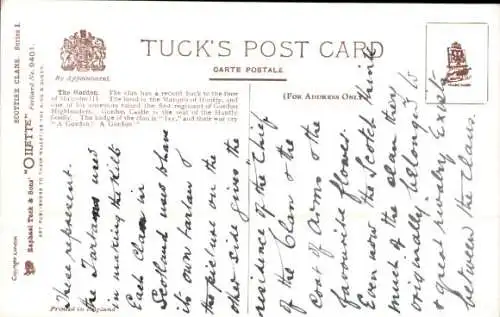 TUCK'S POST CARD
CARTE POSTALE
By Appointment.
(FOR ADDRESS ONLY)
The Gordon. The clan has a record back to the time
of Malcolm III. The head is the Marquis of Huntly, and
one of his ancestors raised the first regiment of Gordon
Highlanders. Gordon Castle is the seat of the Huntly
family. The badge of the clan is "Ivy," and their war cry
"A Gordon! A Gordon!"
SCOTTISH CLANS. Series I.
"OILETTE" Postcard No. 9401.
Raphael Tuck & Sons'
ART PUBLISHERS TO THEIR MAJESTIES THE KING & QUEEN.
Copyright London
Printed in England
TRADE MARK
These represent
the Tartans used
in making the Kilts
Each Clan in
Scotland used to have
its own tartan &
the picture on the
other side gives the
residence of the Chief
of the Clan & the
Coat of Arms & the
favourite flower
Even now the Scotch think
much of the clan they
originally belonged to
& great rivalry Exists
between the Clans.